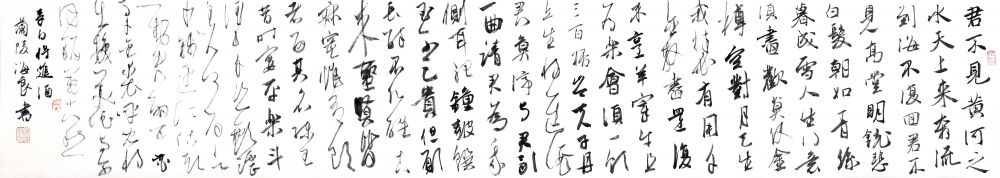 君不見黃河之
水天上来奔流
到海不復回君不
見高堂明鏡悲
白髮朝如青絲
暮成雪人生得意
須盡歡莫使金
樽空對月天生
我材必有用千
金散盡還復
来烹羊宰牛且
為樂會須一飲
三百杯岑夫子丹
丘生將進酒
君莫停与君歌
一曲請君為我
側耳聽鐘鼓饌
玉不足貴但願
長醉不復醒古
来聖賢皆
寂寞惟有飲
者留其名陳王
昔時宴平樂斗
酒十千恣歡謔
主人何為言
少錢徑須沽取
對君酌五花
馬千金裘呼兒將
出換美酒与爾
同銷萬古愁
李白將進酒
蘭陵海書